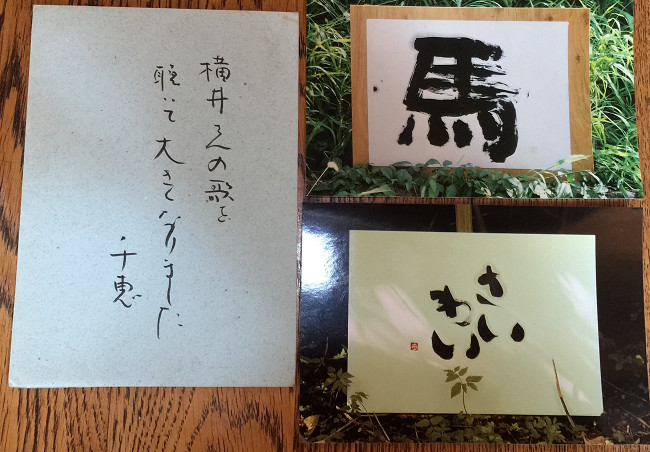 横井さんの歌を
聴いて大きくなりました
千恵
馬
さいわい